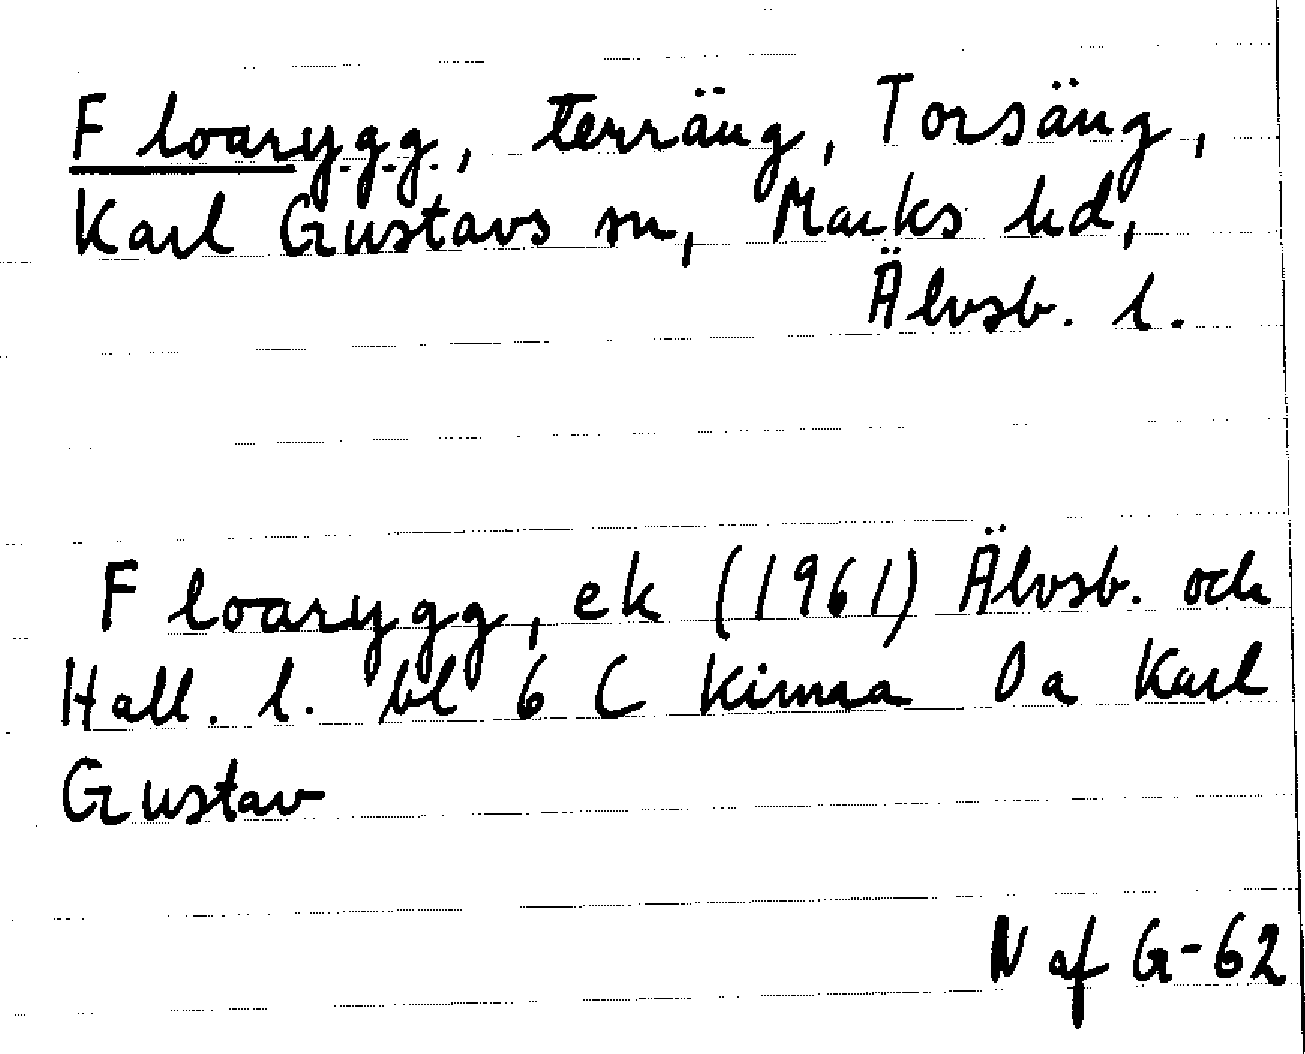 Floarygg, terräng, Torsäng,
Karl Gustavs sn, Marks hd,
Älvsb. l.
Floarygg, ek (1961) Älvsb. och
Hall. l. bl 6 C Kinna 0a Karl
Gustav
N af G-62